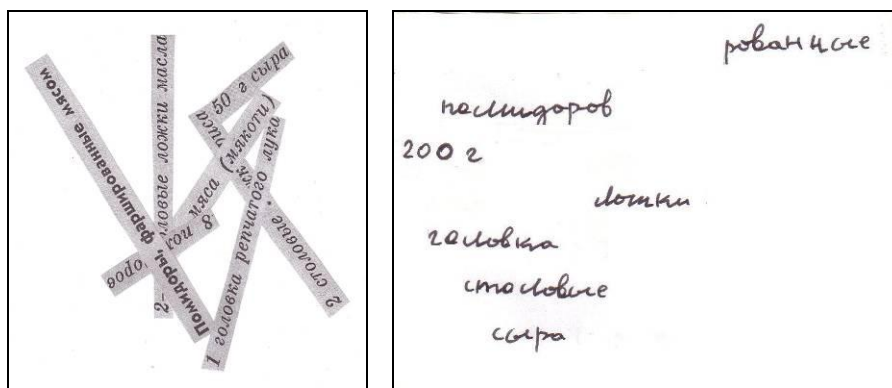 Помидоры, фаршированные мясом
ловые ложки масла
50 г сыра
мяса (мякоти)
2 столовые
1 головка репчатого лука
8
рованные
помидоров
200 г
ложки
головка
столовые
сыра